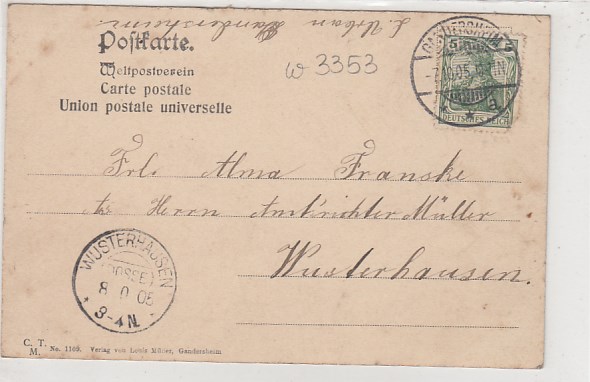 L. Urban
Gandersheim.
Postkarte.
Weltpostverein
Carte postale
Union postale universelle
W 3353
GANDERSHEIM
DEUTSCHES REICH
a
Frl. Alma Franske
Herrn Amtsrichter Müller
Wusterhausen.
WUSTERHAUSEN
(DOSSE)
8 0 05
3-4N.
C. T.
M. No. 1169. Verlag von Louis Müller, Gandersheim